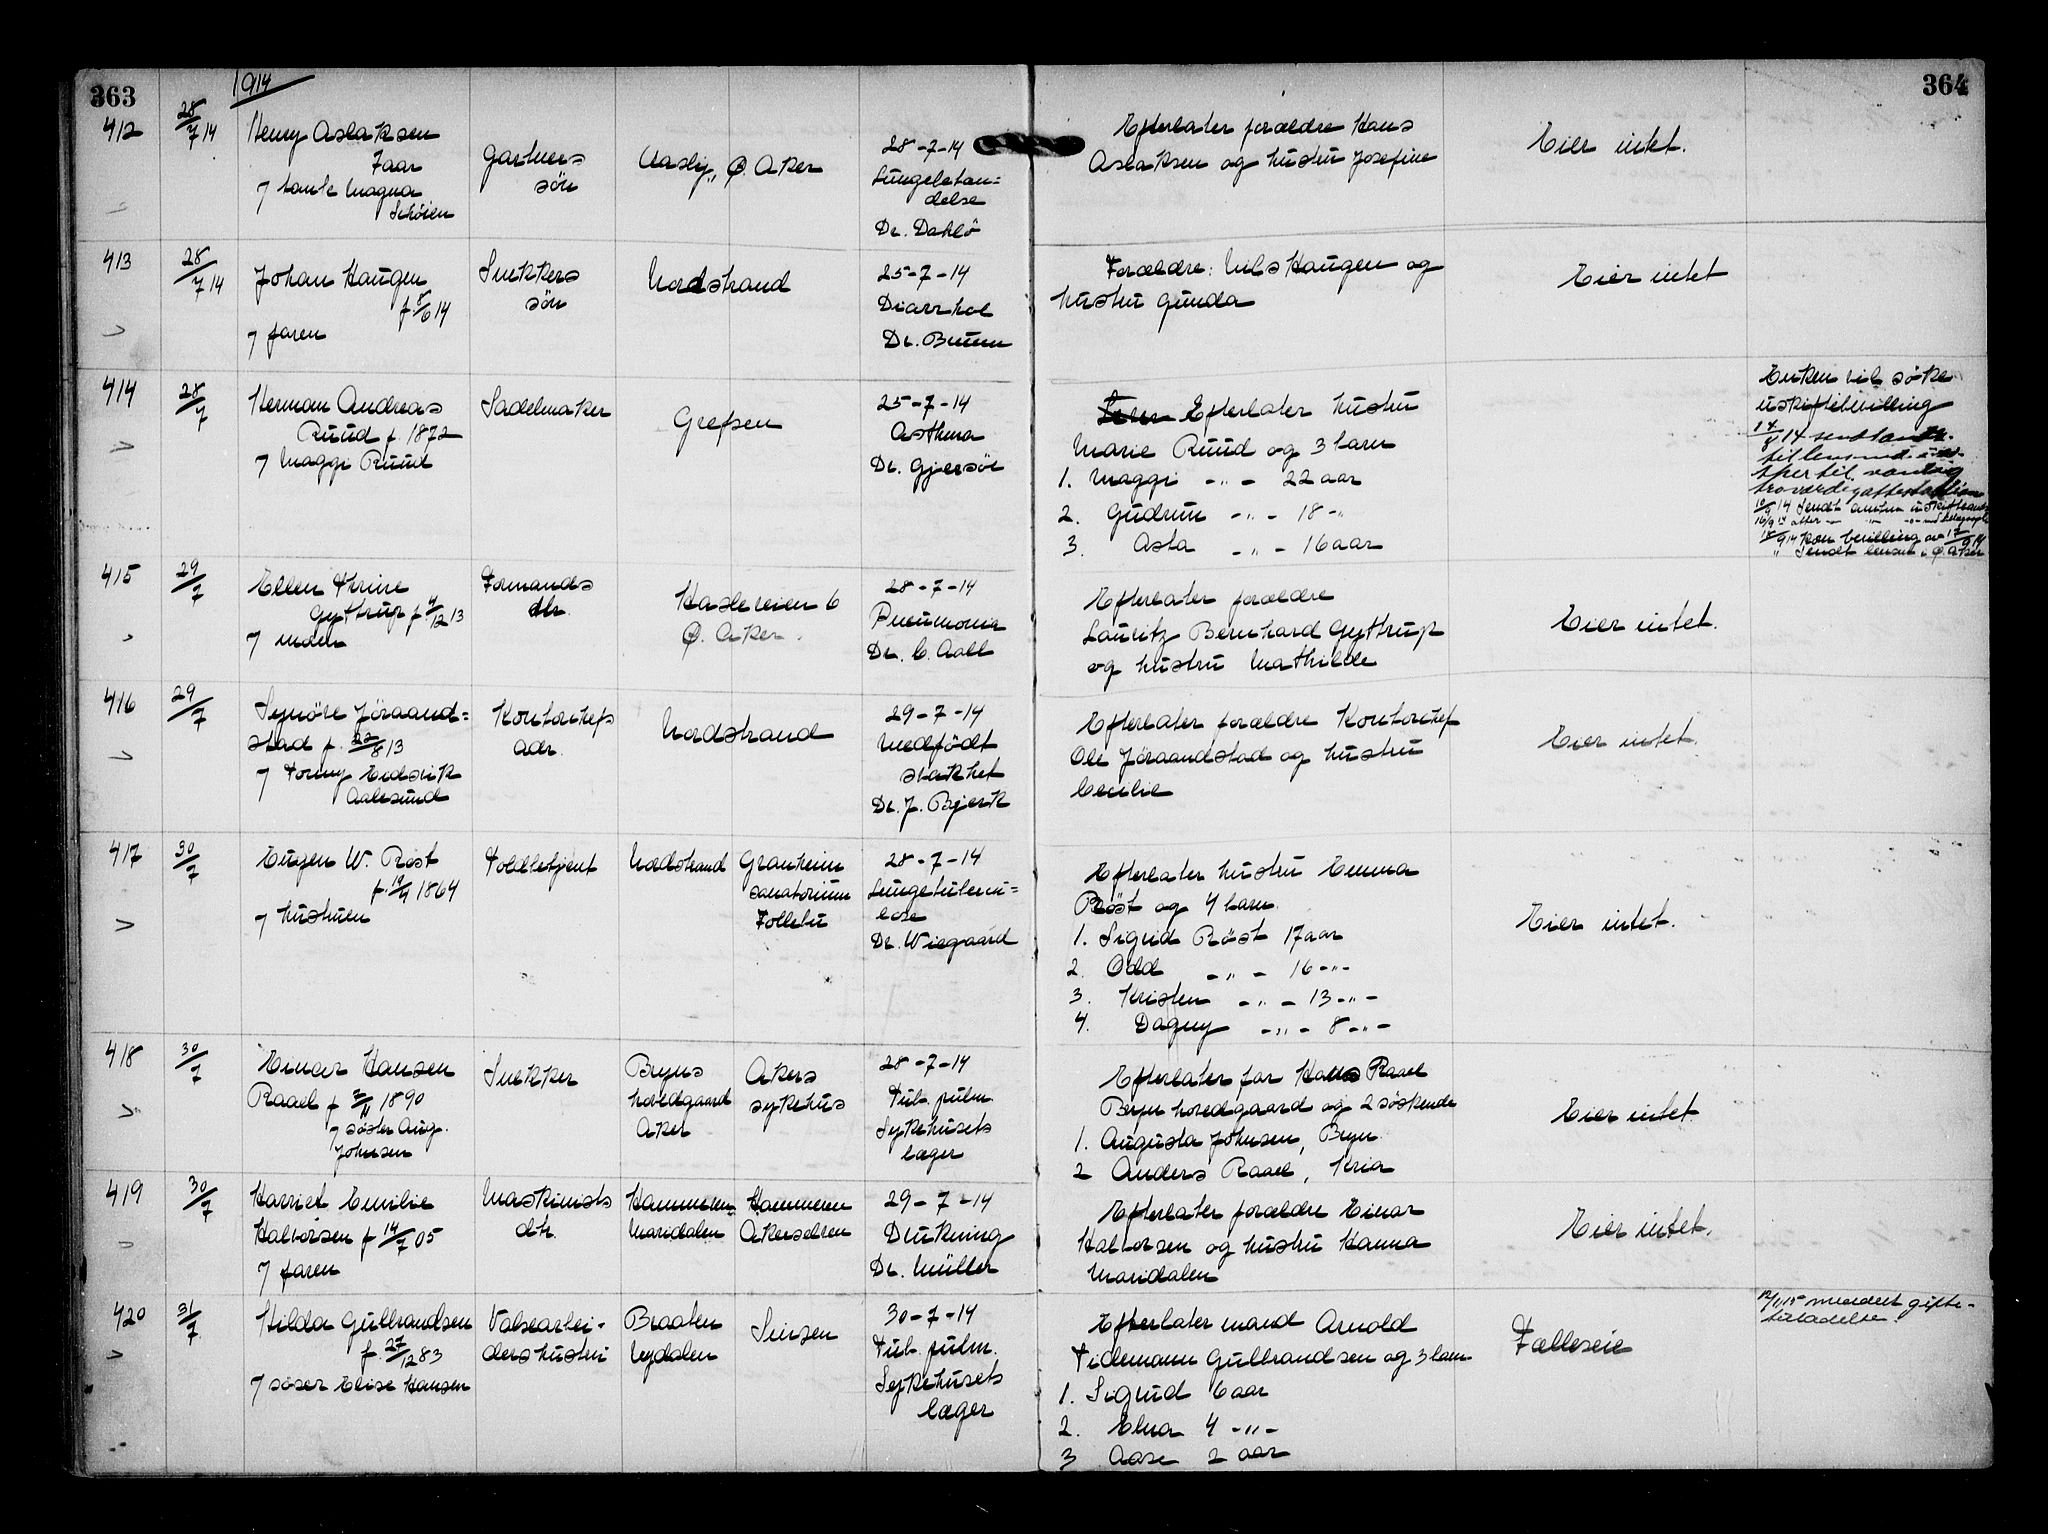 363
1914
364
412
28/7 14
Henry Aslaksen
7 aar
7 tante Magna
Schöien
Gartners
sön
Ø. Aker
28-7-14
Lungebetæn=
delse
Dr. Dahlö
Efterlater forældre Hans
Aslaksen og hustru Josefine
Eier intet.
413
28/7 14
Johan Haugen
f. 8/6 14
7 faren
Snekkers
sön
Nordstrand
25-7-14
Diarrhoe
Dr. Bruun
Forældre: Nils Haugen og
hustru Gunda
Eier intet
414
28/7
Herman Andreas
Ruud f. 1872
7 Maggi Ruud
Sadelmaker
Grefsen
25-7-14
Asthma
Dr. Gjersöe
Efterlater hustru
Marie Ruud og 3 barn
1. Maggi -"- 22 aar
2. Gudrun -"- 18 -"
3. Asta -"- 16 aar
Enken vil söke
uskiftebevilling
415
29/7
Ellen Trine
Gyttrup f 4/12 13
7 moder
Formands
dtr.
Hasleveien 6
Ø. Aker.
28-7-14
Pneumonia
Dr. C. Aall
Efterlater forældre
Lauritz Bernhard Gyttrup
og hustru Mathilde
Eier intet.
416
29/7
Synöve Jöraand=
stad f. 22/8 13
7 Tormy Eidsvik
Aalesund
Kontorchefs
adr.
Nordstrand
29-7-14
Medfödt
svakhet
Dr. J. Bjerk
Efterlater forældre Kontorchef
Ole Jöraandstad og hustru
Cecilie
Eier intet.
417
30/7
Eugen W. Röst
f. 19/4 1864
7 hustruen
Toldbetjent
Nordstrand
Granheim
sanatorium
Follebu
28-7-14
Lungetuberku=
lose
Dr. Wiegaard
Efterlater hustru Emma
Röst og 4 barn
1. Sigrid Röst 17 aar
2. Odd -"- 16 -"-
3. Kristen -"- 13 -"-
4. Dagny -"- 8 -"-
Eier intet.
418
30/7
Einar Hansen
Raael f 2/11 1890
7 söster Aug.
Johnsen
Snekker
Bryns
hovedgaard
Aker
Akers
sykehus
28-7-14
Tub. pulm.
Sykehusets
læger
Efterlater far Hans Raael
Bryn hovedgaard og 2 söskende
1. Augusta Johnsen, Bryn
2 Anders Raael, Kria
Eier intet.
419
30/7
Harriet Emilie
Halvorsen f 14/7 05
7 faren
Maskinists
dtr.
Hammeren
Maridalen
Hammeren
Akerselven
29-7-14
Drukning
Dr. Müller
Efterlater forældre Einar
Halvorsen og hustru Hanna
Maridalen
Eier intet.
420
31/7
Hilda Gulbrandsen
f. 27/12 83
7 söser Elise Hansen
Valsearbei-
ders hustru
Braaten
Nydalen
Sinsen
30-7-14
Tub. pulm.
Sykehusets
læger
Efterlater mand Arnold
Tidemann Gulbrandsen og 3 barn
1. Sigrud 6 aar
2. Elna 4 -"-
3 Aase 2 aar
Fælleseie